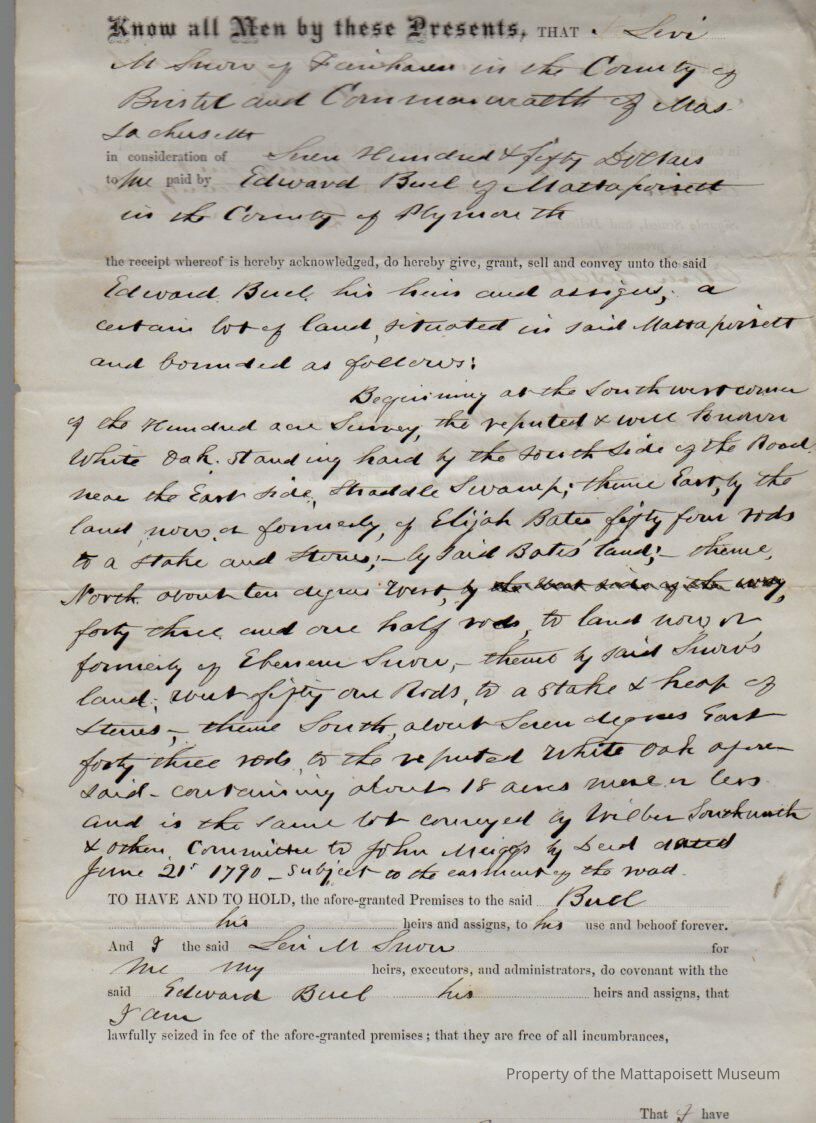 Know all Men by these Presents, THAT I Levi
M Snow of Fairhaven in the County of
Bristol and Commonwealth of Mas
sachusetts
in consideration of Seven Hundred & fifty Dollars
to me paid by Edward Buel of Mattapoisett
in the County of Plymouth
the receipt whereof is hereby acknowledged, do hereby give, grant, sell and convey unto the said
Edward Buel, his heirs and assigns, a
certain lot of land, situated in said Mattapoisett
and bounded as follows:
Beginning at the Southwest corner
of the Hundred acre Survey, the reputed & well known
White Oak. standing hard by the south side of the Road,
near the East side, Straddle Swamp; thence East, by the
land, now, or formerly, of Elijah Bates fifty four rods
to a stake and stones; - by said Bates' land; - thence,
North about ten degrees West, by the West side of the way,
forty three and one half rods, to land now or
formerly of Ebenezer Snow, - thence by said Snow's
land; West fifty one Rods, to a stake & heap of
stones - thence South, about Seven degrees East
forty three rods, to the reputed White Oak afore-
said - containing about 18 acres more or less
and is the same lot conveyed by Wilber Southworth
& others, Committee to John Meiggs by Deed dated
June 21st 1790 - subject to the easment of the road.
TO HAVE AND TO HOLD, the afore-granted Premises to the said Buel
his heirs and assigns, to his use and behoof forever.
And I the said Levi M Snow for
me my heirs, executors, and administrators, do covenant with the
said Edward Buel his heirs and assigns, that
I am
lawfully seized in fee of the afore-granted premises; that they are free of all incumbrances,
Property of the Mattapoisett Museum
That I have